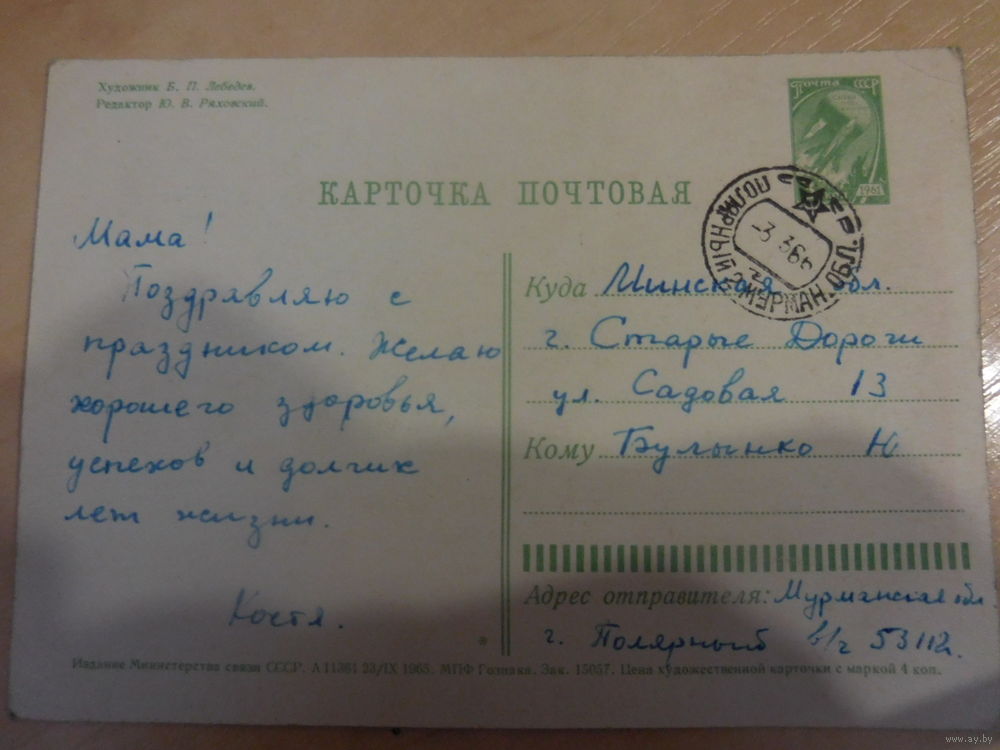 Художник Б. П. Лебедев.
Редактор Ю. В. Ряховский.
Почта СССР
1961
КАРТОЧКА ПОЧТОВАЯ
ПОЛЯРНЫЙ МУРМАН. ОБЛ.
СССР
Мама!
Поздравляю с
праздником. Желаю
хорошего здоровья,
успехов и долгих
лет жизни.
Костя.
Куда Минская обл.
г. Старые Дороги
ул. Садовая 13
Кому Булынко Н
Адрес отправителя: Мурманская обл
г. Полярный в/ч 53112.
Издание Министерства связи СССР. А 11361 23/IX 1965. МПФ Гознака. Зак. 15057. Цена художественной карточки с маркой 4 коп.
www.ay.by